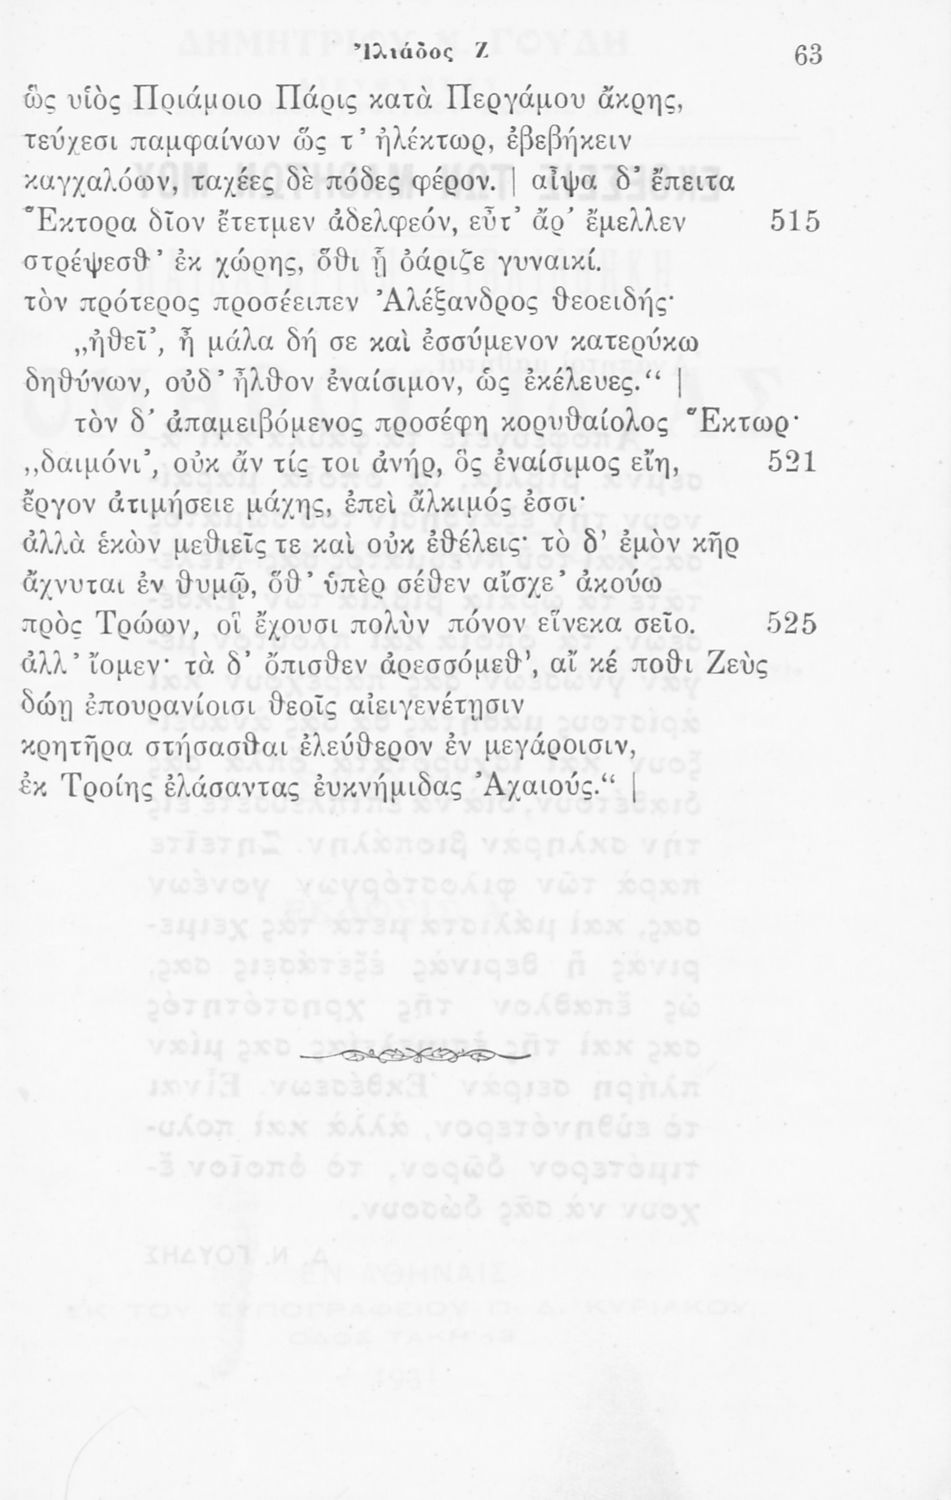 Ἰλιάδος Ζ 63
ὣς υἱὸς Πριάμοιο Πάρις κατὰ Περγάμου ἄκρης,
τεύχεσι παμφαίνων ὥς τ’ ἠλέκτωρ, ἐβεβήκειν
καγχαλόων, ταχέες δὲ πόδες φέρον. | αἶψα δ’ ἔπειτα
Ἕκτορα δῖον ἔτετμεν ἀδελφεόν, εὖτ’ ἄρ’ ἔμελλεν 515
στρέψεσθ’ ἐκ χώρης, ὅθι ᾗ ὀάριζε γυναικί.
τὸν πρότερος προσέειπεν Ἀλέξανδρος θεοειδής·
„ἠθεῖ’, ἦ μάλα δή σε καὶ ἐσσύμενον κατερύκω
δηθύνων, οὐδ’ ἦλθον ἐναίσιμον, ὡς ἐκέλευες.“ |
τὸν δ’ ἀπαμειβόμενος προσέφη κορυθαίολος Ἕκτωρ·
„δαιμόνι’, οὐκ ἄν τίς τοι ἀνήρ, ὃς ἐναίσιμος εἴη, 521
ἔργον ἀτιμήσειε μάχης, ἐπεὶ ἄλκιμός ἐσσι·
ἀλλὰ ἑκὼν μεθιεῖς τε καὶ οὐκ ἐθέλεις· τὸ δ’ ἐμὸν κῆρ
ἄχνυται ἐν θυμῷ, ὅθ’ ὑπὲρ σέθεν αἴσχε’ ἀκούω
πρὸς Τρώων, οἳ ἔχουσι πολὺν πόνον εἵνεκα σεῖο. 525
ἀλλ’ ἴομεν· τὰ δ’ ὄπισθεν ἀρεσσόμεθ’, αἴ κέ ποθι Ζεὺς
δώῃ ἐπουρανίοισι θεοῖς αἰειγενέτῃσιν
κρητῆρα στήσασθαι ἐλεύθερον ἐν μεγάροισιν,
ἐκ Τροίης ἐλάσαντας ἐυκνήμιδας Ἀχαιούς.“ |